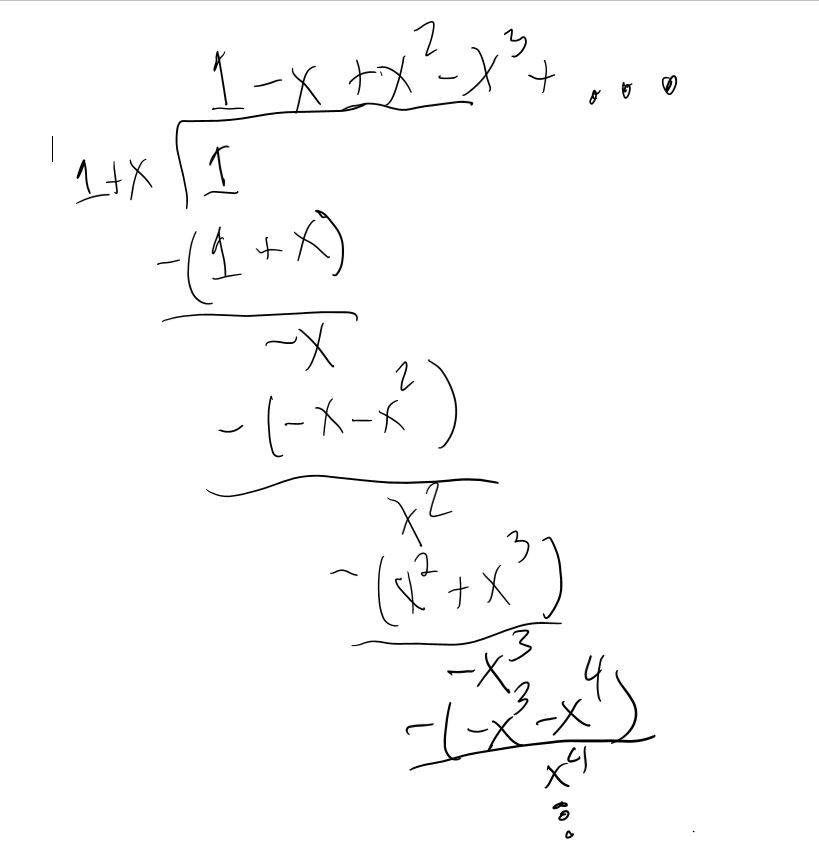 1 - x + x² - x³ + ...
1+x 1
-(1 + x)
-x
-(-x - x²)
x²
-(x² + x³)
-x³
-(-x³ - x⁴)
x⁴
⋮